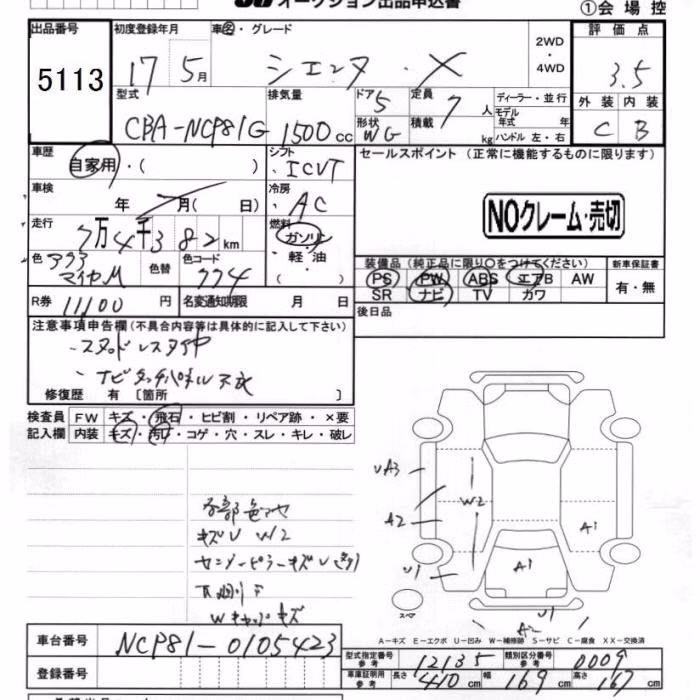 オークション出品申込書
①会場控
出品番号
5113
初度登録年月
17 5月
車名・グレード
シエンタ・X
2WD
・
4WD
評価点
3.5
外装 内装
C B
型式
CBA-NCP81G
排気量
1500cc
ドア
5
定員
7人
形状
WG
積載
kg
ディーラー・並行
モデル年式 年
ハンドル 左・右
車歴
自家用・( )
シフト
ICVT
セールスポイント (正常に機能するものに限ります)
車検
年 月( 日)
冷房
AC
NOクレーム・売切
走行
7万4千382km
燃料
ガソリン
・軽・油
( )
色
マイカM
色替
色コード
774
装備品 (純正品に限り○をつけてください)
PS PW ABS エアB AW
SR ナビ TV カワ
新車保証書
有・無
R券
11100円
名変通知期限 月 日
後日品
注意事項申告欄(不具合内容等は具体的に記入して下さい)
・スタッドレスタイヤ
・ナビタッチパネル不良
修復歴 有〔箇所 〕
検査員
記入欄
FW キズ・飛石・ヒビ割・リペア跡・×要
内装 キズ・汚レ・コゲ・穴・スレ・キレ・破レ
各部色アセ
キズU W2
センターピラーキズU
下廻りF
Wキャップキズ
UA3
A2
W2
A1
U1
A1
U1
A2
スペア
A-キズ E-エクボ U-凹み W-補修跡 S-サビ C-腐食 XX-交換済
車台番号
NCP81-0105423
登録番号
型式指定番号
参考
12135
類別区分番号
参考
0009
車庫証明用
参考
長さ 410cm 幅 169cm 高さ 167cm